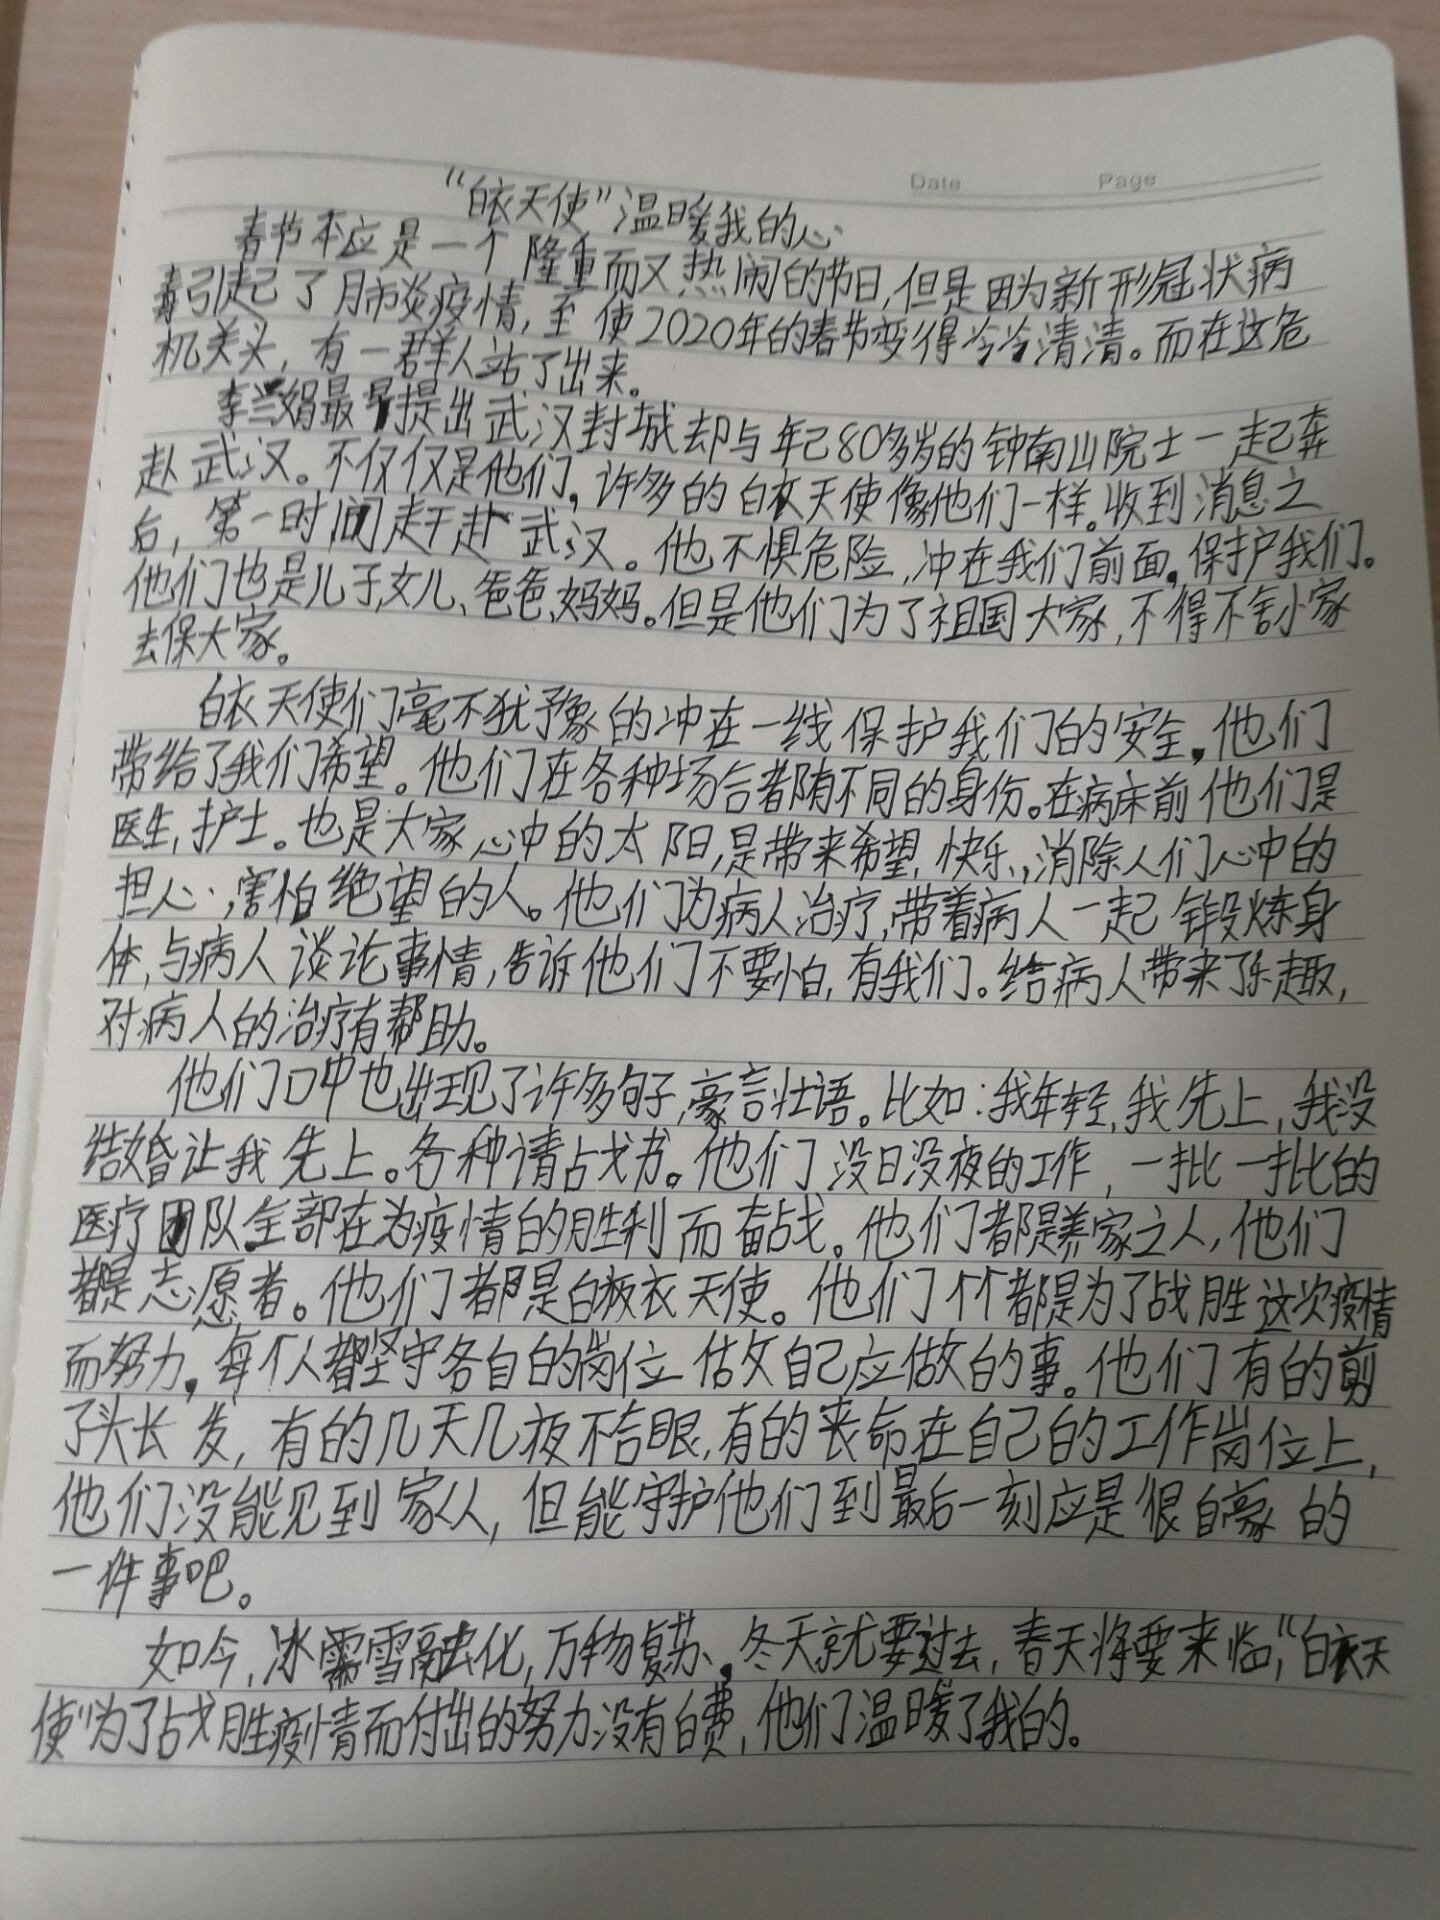 Date Page
“白衣天使”温暖我的心
春节本应是一个隆重而又热闹的节日,但是因为新形冠状病
毒引起了肺炎疫情,至使2020年的春节变得冷冷清清。而在这危
机关头,有一群人站了出来。
李兰娟最早提出武汉封城却与年己80多岁的钟南山院士一起奔
赴武汉。不仅仅是他们,许多的白衣天使像他们一样。收到消息之
后,第一时间赶赴武汉。他不惧危险,冲在我们前面,保护我们。
他们也是儿子,女儿、爸爸,妈妈。但是他们为了祖国大家,不得不舍小家
去保大家。
白衣天使们毫不犹予豫的冲在一线保护我们的安全,他们
带给了我们希望。他们在各种场合都有不同的身份。在病床前他们是
医生,护士。也是大家心中的太阳,是带来希望,快乐,消除人们心中的
担心,害怕绝望的人。他们为病人治疗,带着病人一起锻炼身
体,与病人谈论事情,告诉他们不要怕,有我们。给病人带来了乐趣,
对病人的治疗有帮助。
他们口中也出现了许多句子,豪言壮语。比如:我年轻,我先上,我没
结婚让我先上。各种请占戈书。他们没日没夜的工作,一批一批的
医疗团队全部在为疫情的胜利而奋战。他们都是养家之人,他们
都是志愿者。他们都是白衣天使。他们个个都是为了战胜这次疫情
而努力,每个人都坚守各自的岗位做自己应做的事。他们有的剪
了头长发,有的几天几夜不合眼,有的丧命在自己的工作岗位上,
他们没能见到家人,但能守护他们到最后一刻应是很自豪的
一件事吧。
如今,冰雪融化,万物复苏,冬天就要过去,春天将要来临,“白衣天
使”为了战胜疫情而付出的努力没有白费,他们温暖了我的。